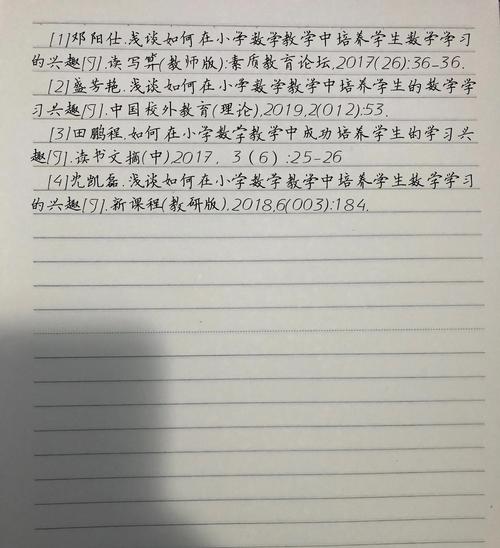 [1]邓阳仕.浅谈如何在小学数学教学中培养学生数学学习
的兴趣[J].读写算(教师版):素质教育论坛,2017(26):36-36.
[2]盛芳艳.浅谈如何在小学数学教学中培养学生的数学学
习兴趣[J].中国校外教育(理论),2019,2(012):53.
[3]田鹏程.如何在小学数学教学中成功培养学生的学习兴
趣[J].读书文摘(中),2017, 3(6):25-26
[4]沈凯磊.浅谈如何在小学数学教学中培养学生数学学习
的兴趣[J].新课程(教研版),2018,6(003):184.